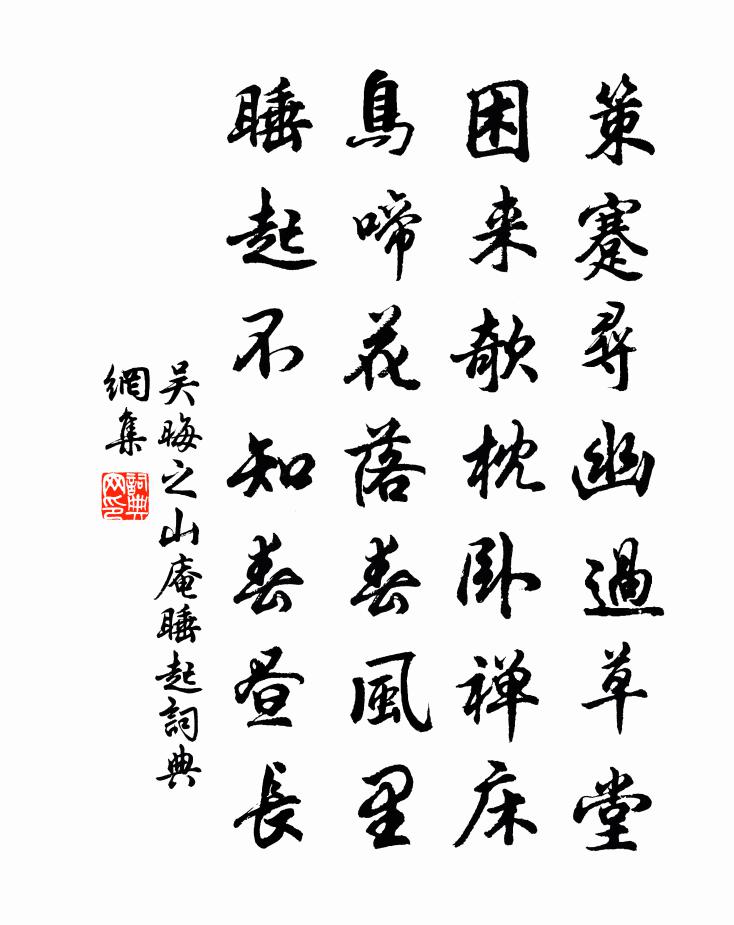 策蹇尋幽過草堂
困来欹枕卧禅床
鳥啼花落春風里
睡起不知春昼長
吴晦之山庵睡起詞典
網集
詞典
网印